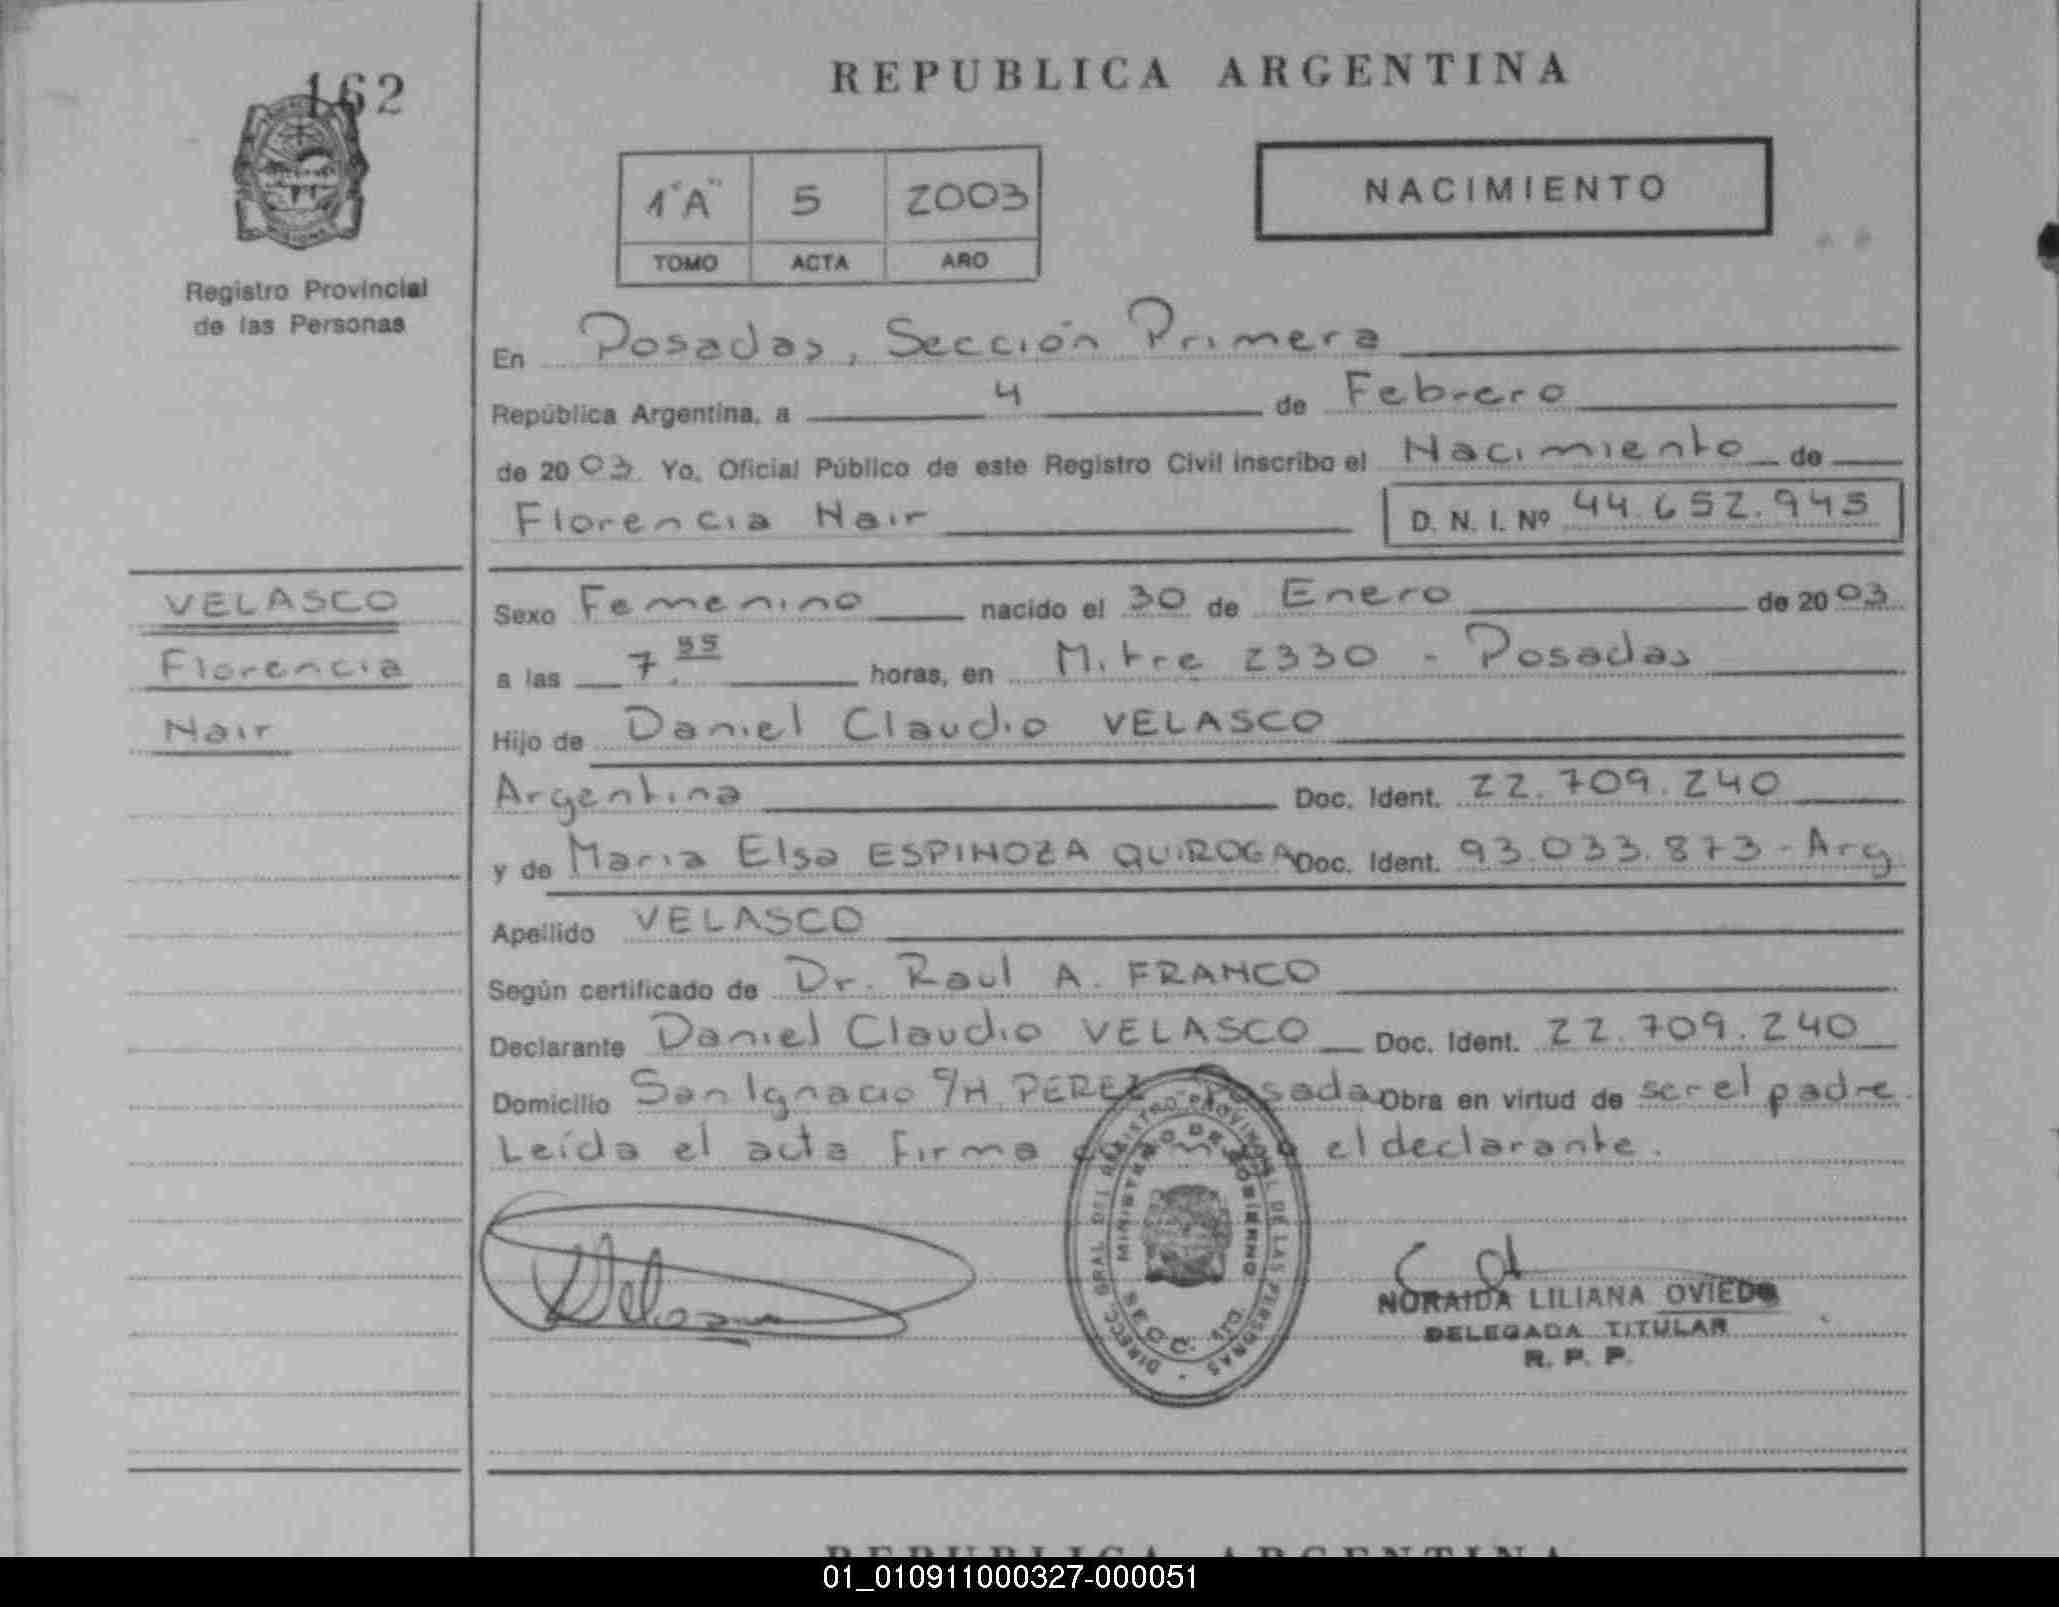 162
REPUBLICA ARGENTINA
1"A" 5 2003
TOMO ACTA AÑO
NACIMIENTO
Registro Provincial
de las Personas
En Posadas, Sección Primera
República Argentina, a 4 de Febrero
de 2003. Yo, Oficial Público de este Registro Civil inscribo el Nacimiento de
Florencia Nair D. N. I. Nº 44.652.945
VELASCO
Florencia
Nair
Sexo Femenino nacido el 30 de Enero de 2003
a las 7.55 horas, en Mitre 2330 - Posadas
Hijo de Daniel Claudio VELASCO
Argentina Doc. Ident. 22.709.240
y de Maria Elsa ESPINOZA QUIROGA Doc. Ident. 93.033.873 - Arg
Apellido VELASCO
Según certificado de Dr. Raul A. FRANCO
Declarante Daniel Claudio VELASCO Doc. Ident. 22.709.240
Domicilio San Ignacio S/N PEREZ Posadas Obra en virtud de ser el padre.
Leída el acta firma el declarante.
DIRECC. GRAL. DEL REGISTRO PROVINCIAL DE LAS PERSONAS
MINISTERIO DE GOBIERNO
NORAIDA LILIANA OVIEDO
DELEGADA TITULAR
R. P. P.
REPUBLICA ARGENTINA
01_010911000327-000051